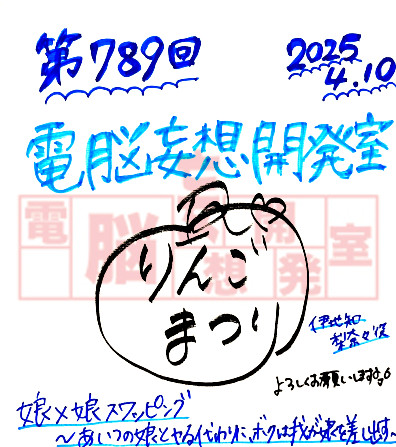 第789回
2025
4.10
電脳妄想開発室
電脳妄想開発室
りんご
まつり
伊地知
梨奈々役
よろしくお願いします。
娘×娘スワッピング
～あいつの娘とヤる代わりに、ボクは我が娘を差し出す～